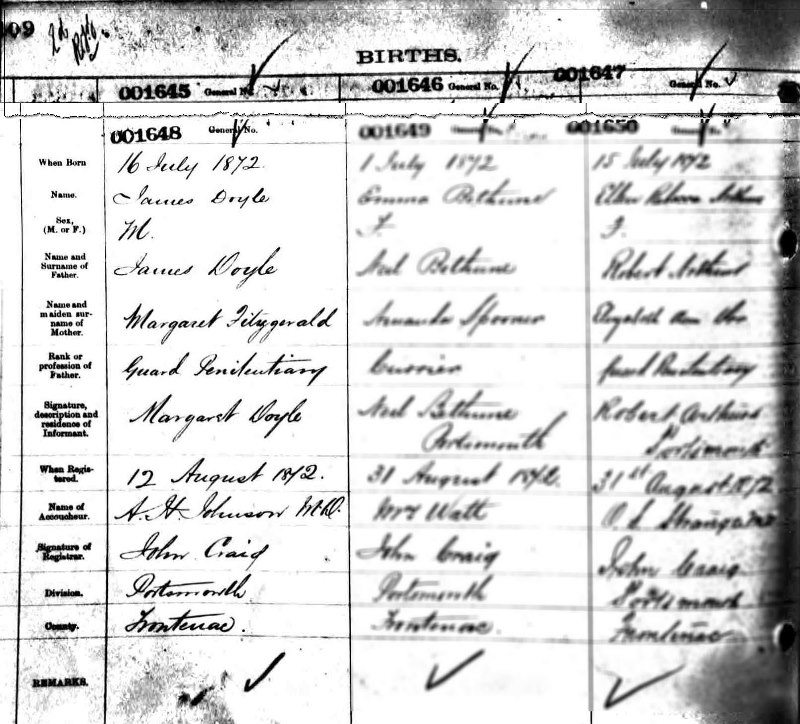 09 2d
BIRTHS.
001645 General No. 001646 General No. 001647 General No.
001648 General No. 001649 001650
When Born 16 July 1872 1 July 1872 15 July 1872
Name. James Doyle Emma Bethune Ellen Rebecca Arthurs
Sex, (M. or F.) M. F F.
Name and Surname of Father. James Doyle Neil Bethune Robert Arthurs
Name and maiden surname of Mother. Margaret Fitzgerald Amanda Spooner Elizabeth Ann
Rank or profession of Father. Guard Penitentiary Currier Guard Penitentiary
Signature, description and residence of Informant. Margaret Doyle Neil Bethune Portsmouth Robert Arthurs Portsmouth
When Registered. 12 August 1872. 31 August 1872. 31st August 1872
Name of Accoucheur. A. H. Johnson M.D. Mrs Watt O. S. Strange M.D.
Signature of Registrar. John Craig John Craig John Craig
Division. Portsmouth Portsmouth Portsmouth
County. Frontenac. Frontenac. Frontenac
REMARKS.